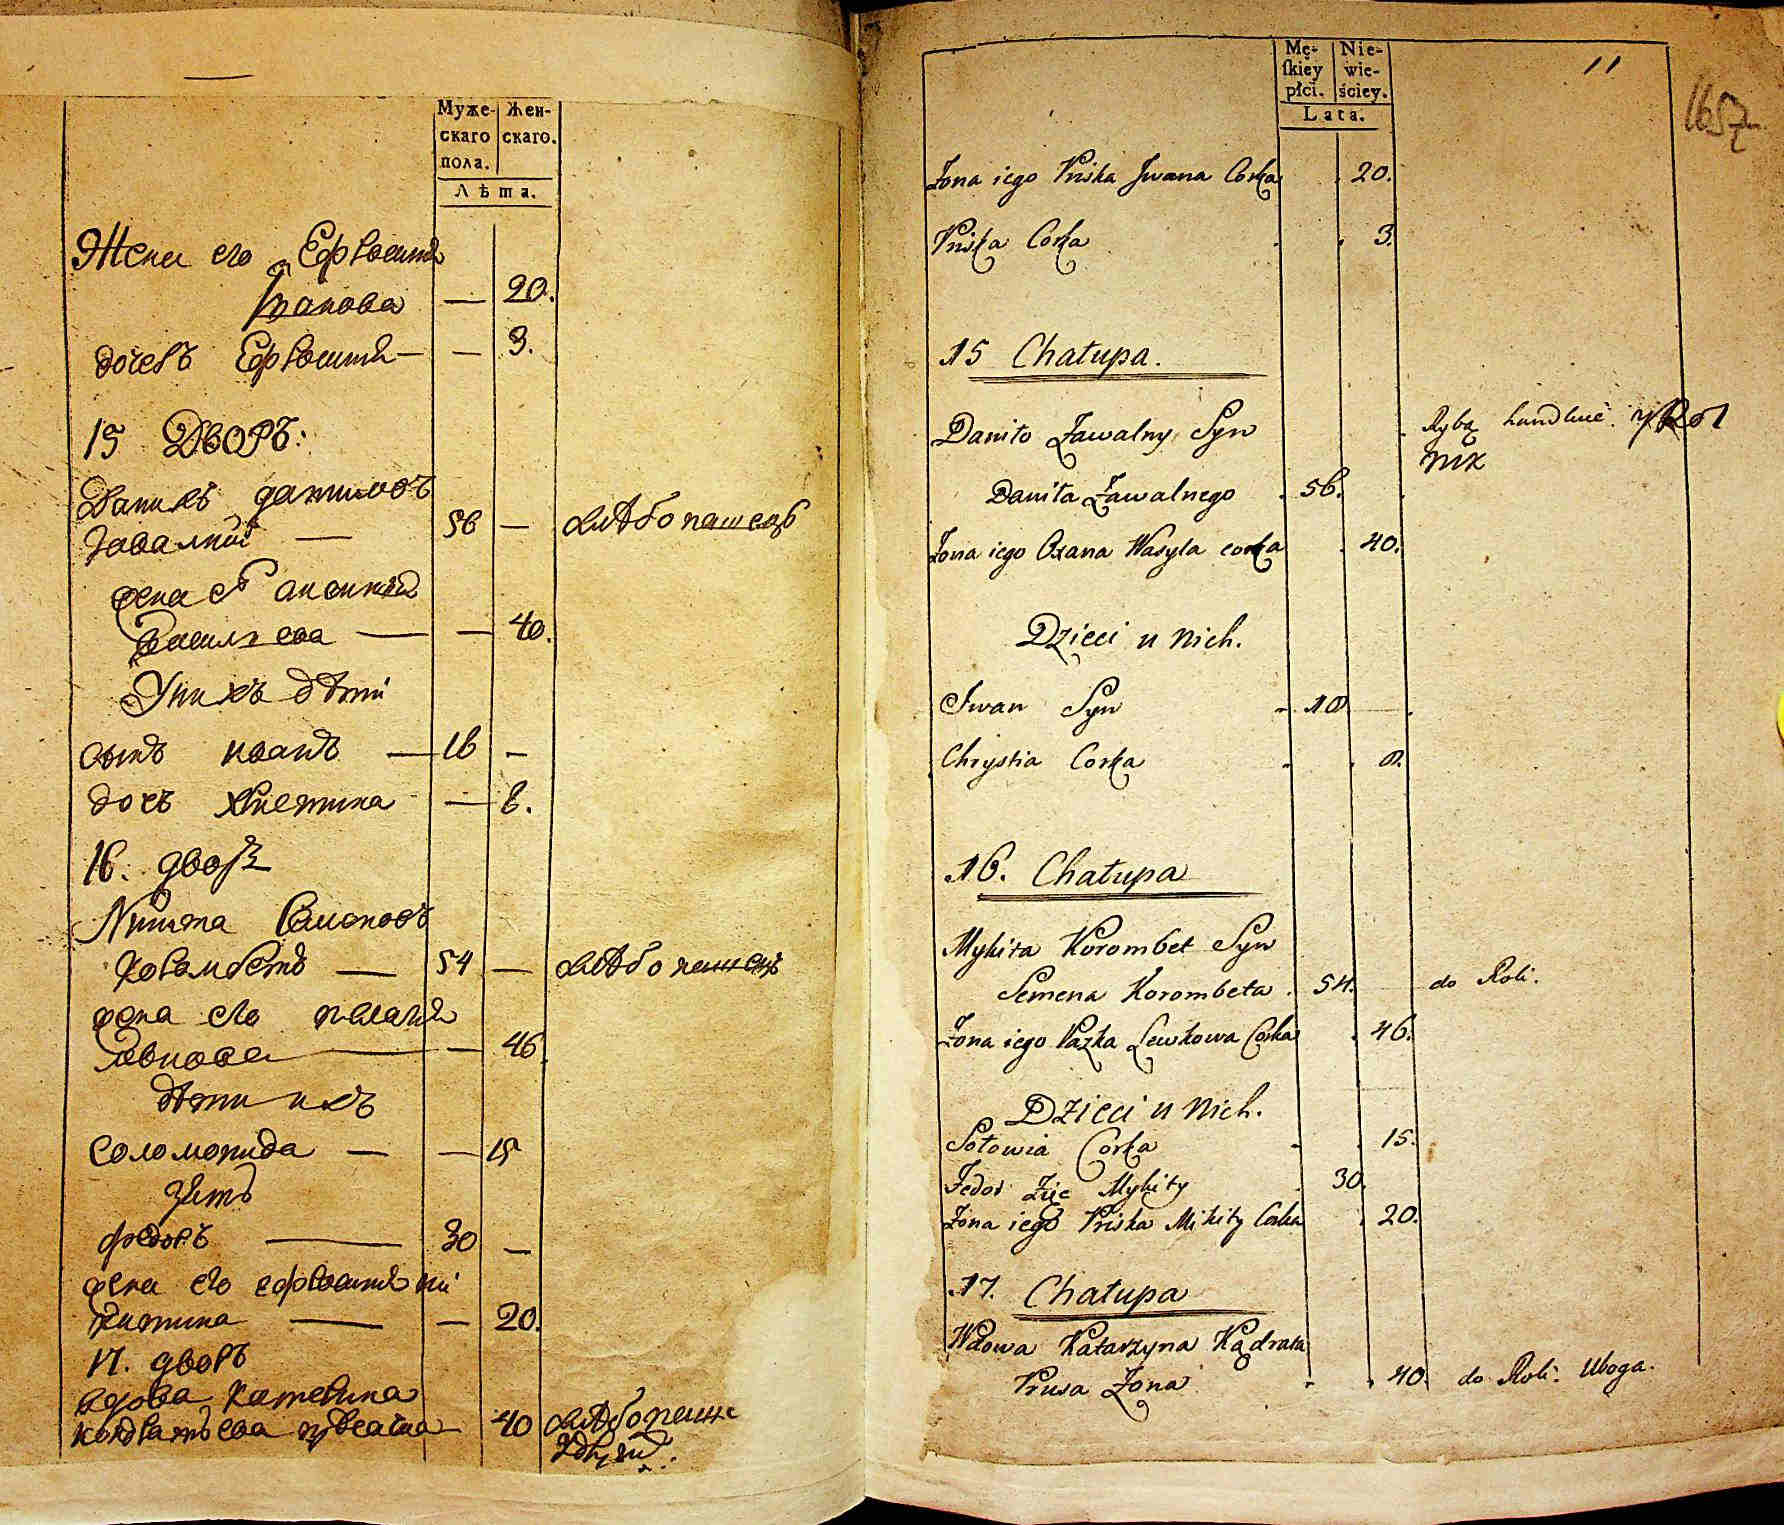 Муже-
скаго
пола.
Жен-
скаго.
Лѣта.
Жена его Ефросиния
Иванова — 20.
дочерь Ефросиния — — 3.
15 Дворъ:
Данило Даниловъ
Завалний — 56 — хлѣбопашецъ
жена его
Васильева — — 40.
У них дѣти
сынъ иванъ — 18 —
дочь христина — 8.
16. дворъ
Микита Семеновъ
Коромбетъ — 54 — хлѣбопашецъ
жена его пелагия
— 46
дѣти ихъ
соломонида — — 15
зять
федоръ — 30 —
жена его ефросиния
Никитина — — 20.
17. дворъ
вдова Катерина
кондратьева — 40 хлѣбопаше
Mę-
ſkiey
płci.
Nie-
wie-
ściey.
Lata.
11
1657
Żona iego Priska Jwana Corka . 20.
Priska Corka . . 3.
15 Chałupa.
Daniło Zawalny Syn . Rybą handluie.
Daniła Zawalnego . 56. .
Żona iego Oxana Wasyla corka . 40.
Dzieci u nich.
Jwan Syn - 18. .
Chrystia Corka - . 8.
16. Chałupa
Mykita Korombet Syn
Semena Korombeta . 54. do Roli.
Żona iego Pazka Lewkowa Corka . 46.
Dzieci u nich.
Sołowia Corka - . 15.
Fedor Zięc Mykity . 30.
Żona iego Priska Mikity Corka . 20.
17. Chałupa
Wdowa Katarzyna Kądrata
Prusa Żona - . 40. do Roli. Uboga.